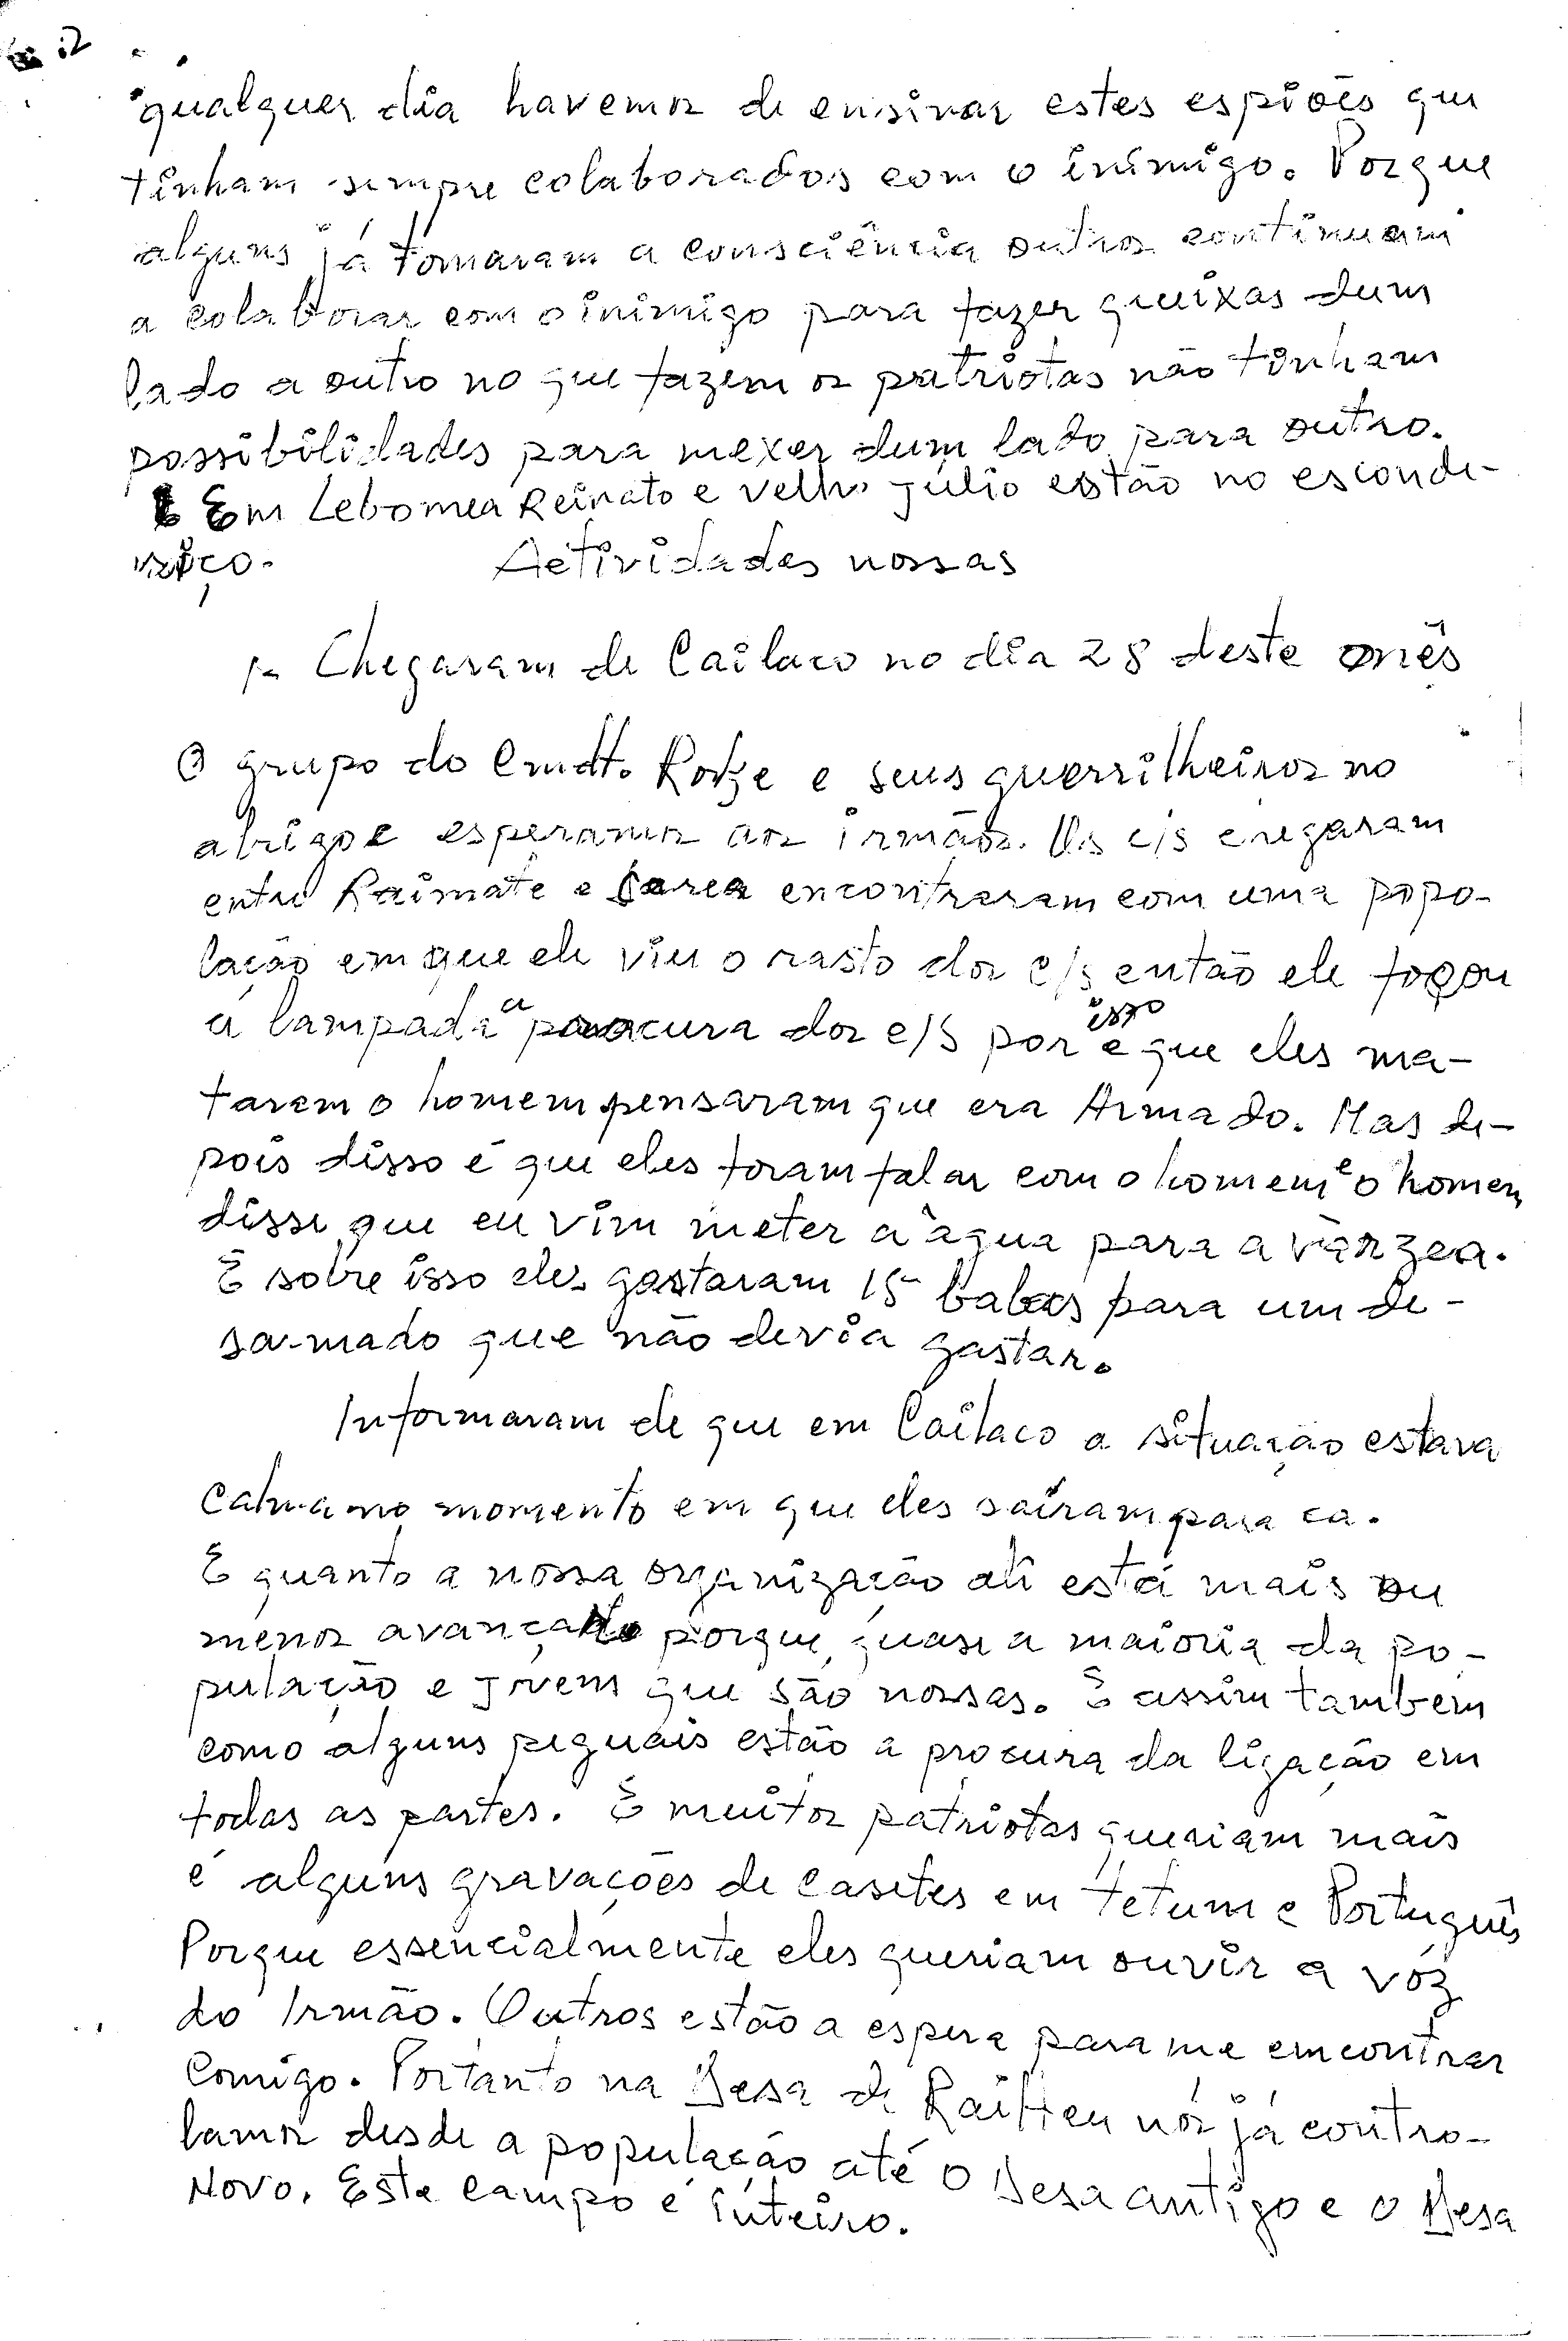 qualquer dia havemos de ensinar estes espiões que
tinham sempre colaborados com o inimigo. Porque
alguns já tomaram a consciência outros continuam
a colaborar com o inimigo para fazer queixas dum
lado a outro no que fazem os patriotas não tinham
possibilidades para mexer dum lado para outro.
Em Lebomea Reinato e velho Júlio estão no escondi-
riço.
Actividades nossas
1- Chegaram de Cailaco no dia 28 deste mês
O grupo do Cmdt. Rodge e seus guerrilheiros no
abrigo e esperamos aos irmãos. Os c/s chegaram
entre Raimate e encontraram com uma popo-
lação em que ele viu o rasto dos c/s então ele focou
a lampada a procura dos c/s por isso é que eles ma-
taram o homem pensaram que era Armado. Mas de-
pois disso é que eles foram falar com o homem e o homem
disse que eu vim meter a àgua para a vàrzea.
E sobre isso eles gastaram 15 balas para um de-
sarmado que não devia gastar.
Informaram de que em Cailaco a situação estava
Calma no momento em que eles saíram para ca.
E quanto a nossa organização ali está mais ou
menos avançado porque quase a maioria da po-
pulação e jovem que são nossas. E assim também
como alguns peguais estão a procura da ligação em
todas as partes. E muitos patriotas queriam mais
é alguns gravações de casetes em tetum e Português
Porque essencialmente eles queriam ouvir a vóz
do Irmão. Outros estão a espera para me emcontrar
Comigo. Portanto na Desa de RaiHeu nós já contro-
lamos desde a população até o Desa antigo e o Desa
Novo. Este campo é inteiro.